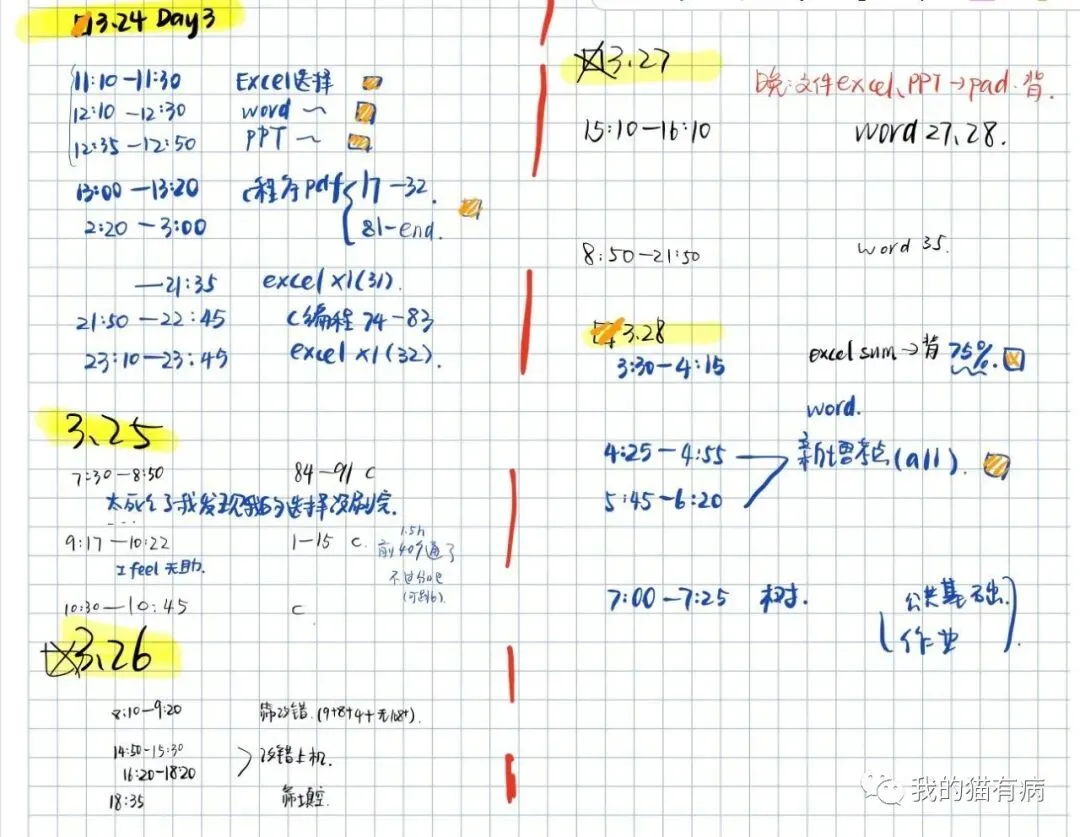 3.24 Day3
11:10-11:30 Excel选择
12:10-12:30 word ~
12:35-12:50 PPT ~
13:00-13:20 C程序pdf 17-32.
2:20-3:00 81-end.
-21:35 excel x1(31).
21:50-22:45 C编程 74-83
23:10-23:45 excel x1(32).
3.25
7:30-8:50 84-91 C
太死亡了我发现我的选择没刷完.
9:17-10:22 1-15 C. 1.5h
前40个通了
I feel 无助.
不过分吧
10:30-10:45 C
3.26
8:10-9:20 筛改错.
14:50-15:30
16:20-18:20 改错上机.
18:35 筛填空.
3.27
晚:文件excel、PPT→pad.背.
15:10-16:10 word 27、28.
8:50-21:50 word 35.
3.28
3:30-4:15 excel sum→背 75%.
word.
4:25-4:55 新增考点(all).
5:45-6:20
7:00-7:25 树. (公共基础.
作业)
我的猫有病